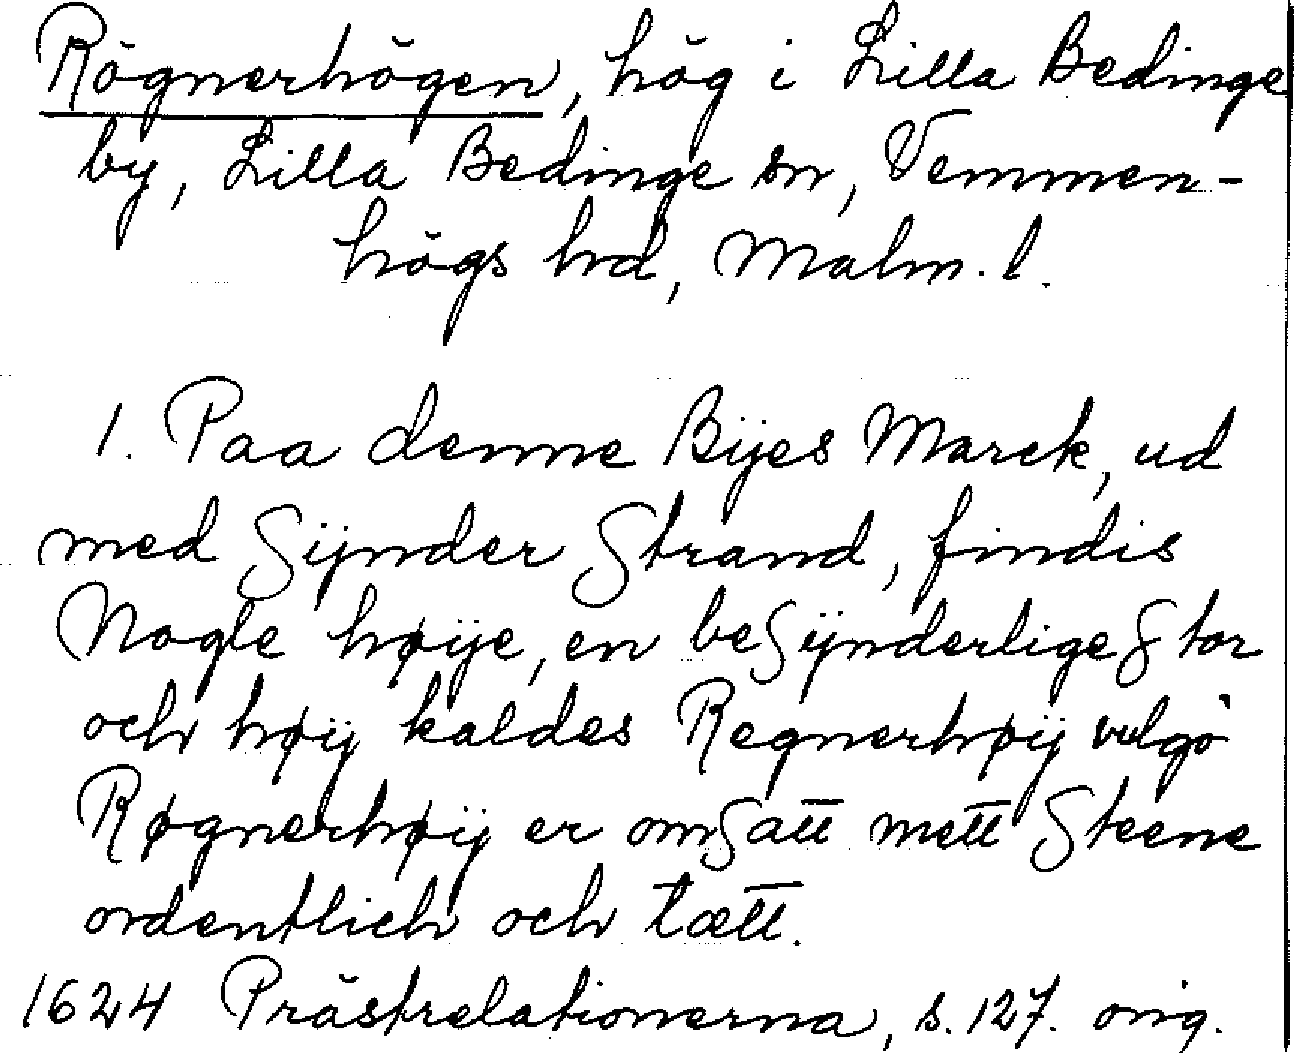 Rögnerhögen, hög i Lilla Bedinge
by, Lilla Bedinge sn, Vemmen-
högs hd, Malm. l.
1. Paa denne Bÿes Marck, ud
med Sÿnder Strand, findis
Nogle høÿe, en beSÿnderlige Stor
och høÿ kaldes Regnerhøÿ vulgo
Røgnerhøÿ er omSatt mett Steene
ordentlich och tætt.
1624 Prästrelationerna, s. 127. orig.